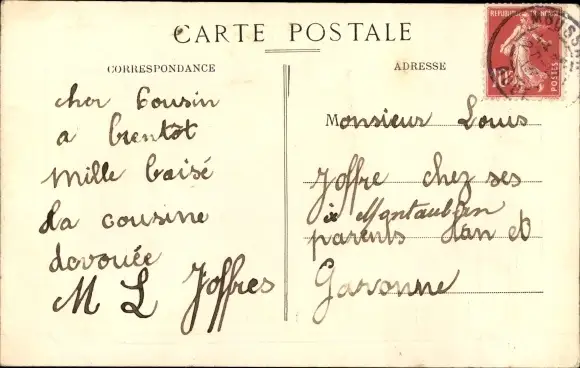 CARTE POSTALE
CORRESPONDANCE
cher Cousin
a bientôt
mille baisé
ta cousine
dovouée
M L Joffres
ADRESSE
Monsieur Louis
Joffre chez ses
à Montauban
parents Tan et
Garonne
REPUBLIQUE FRANÇAISE
10c
POSTES